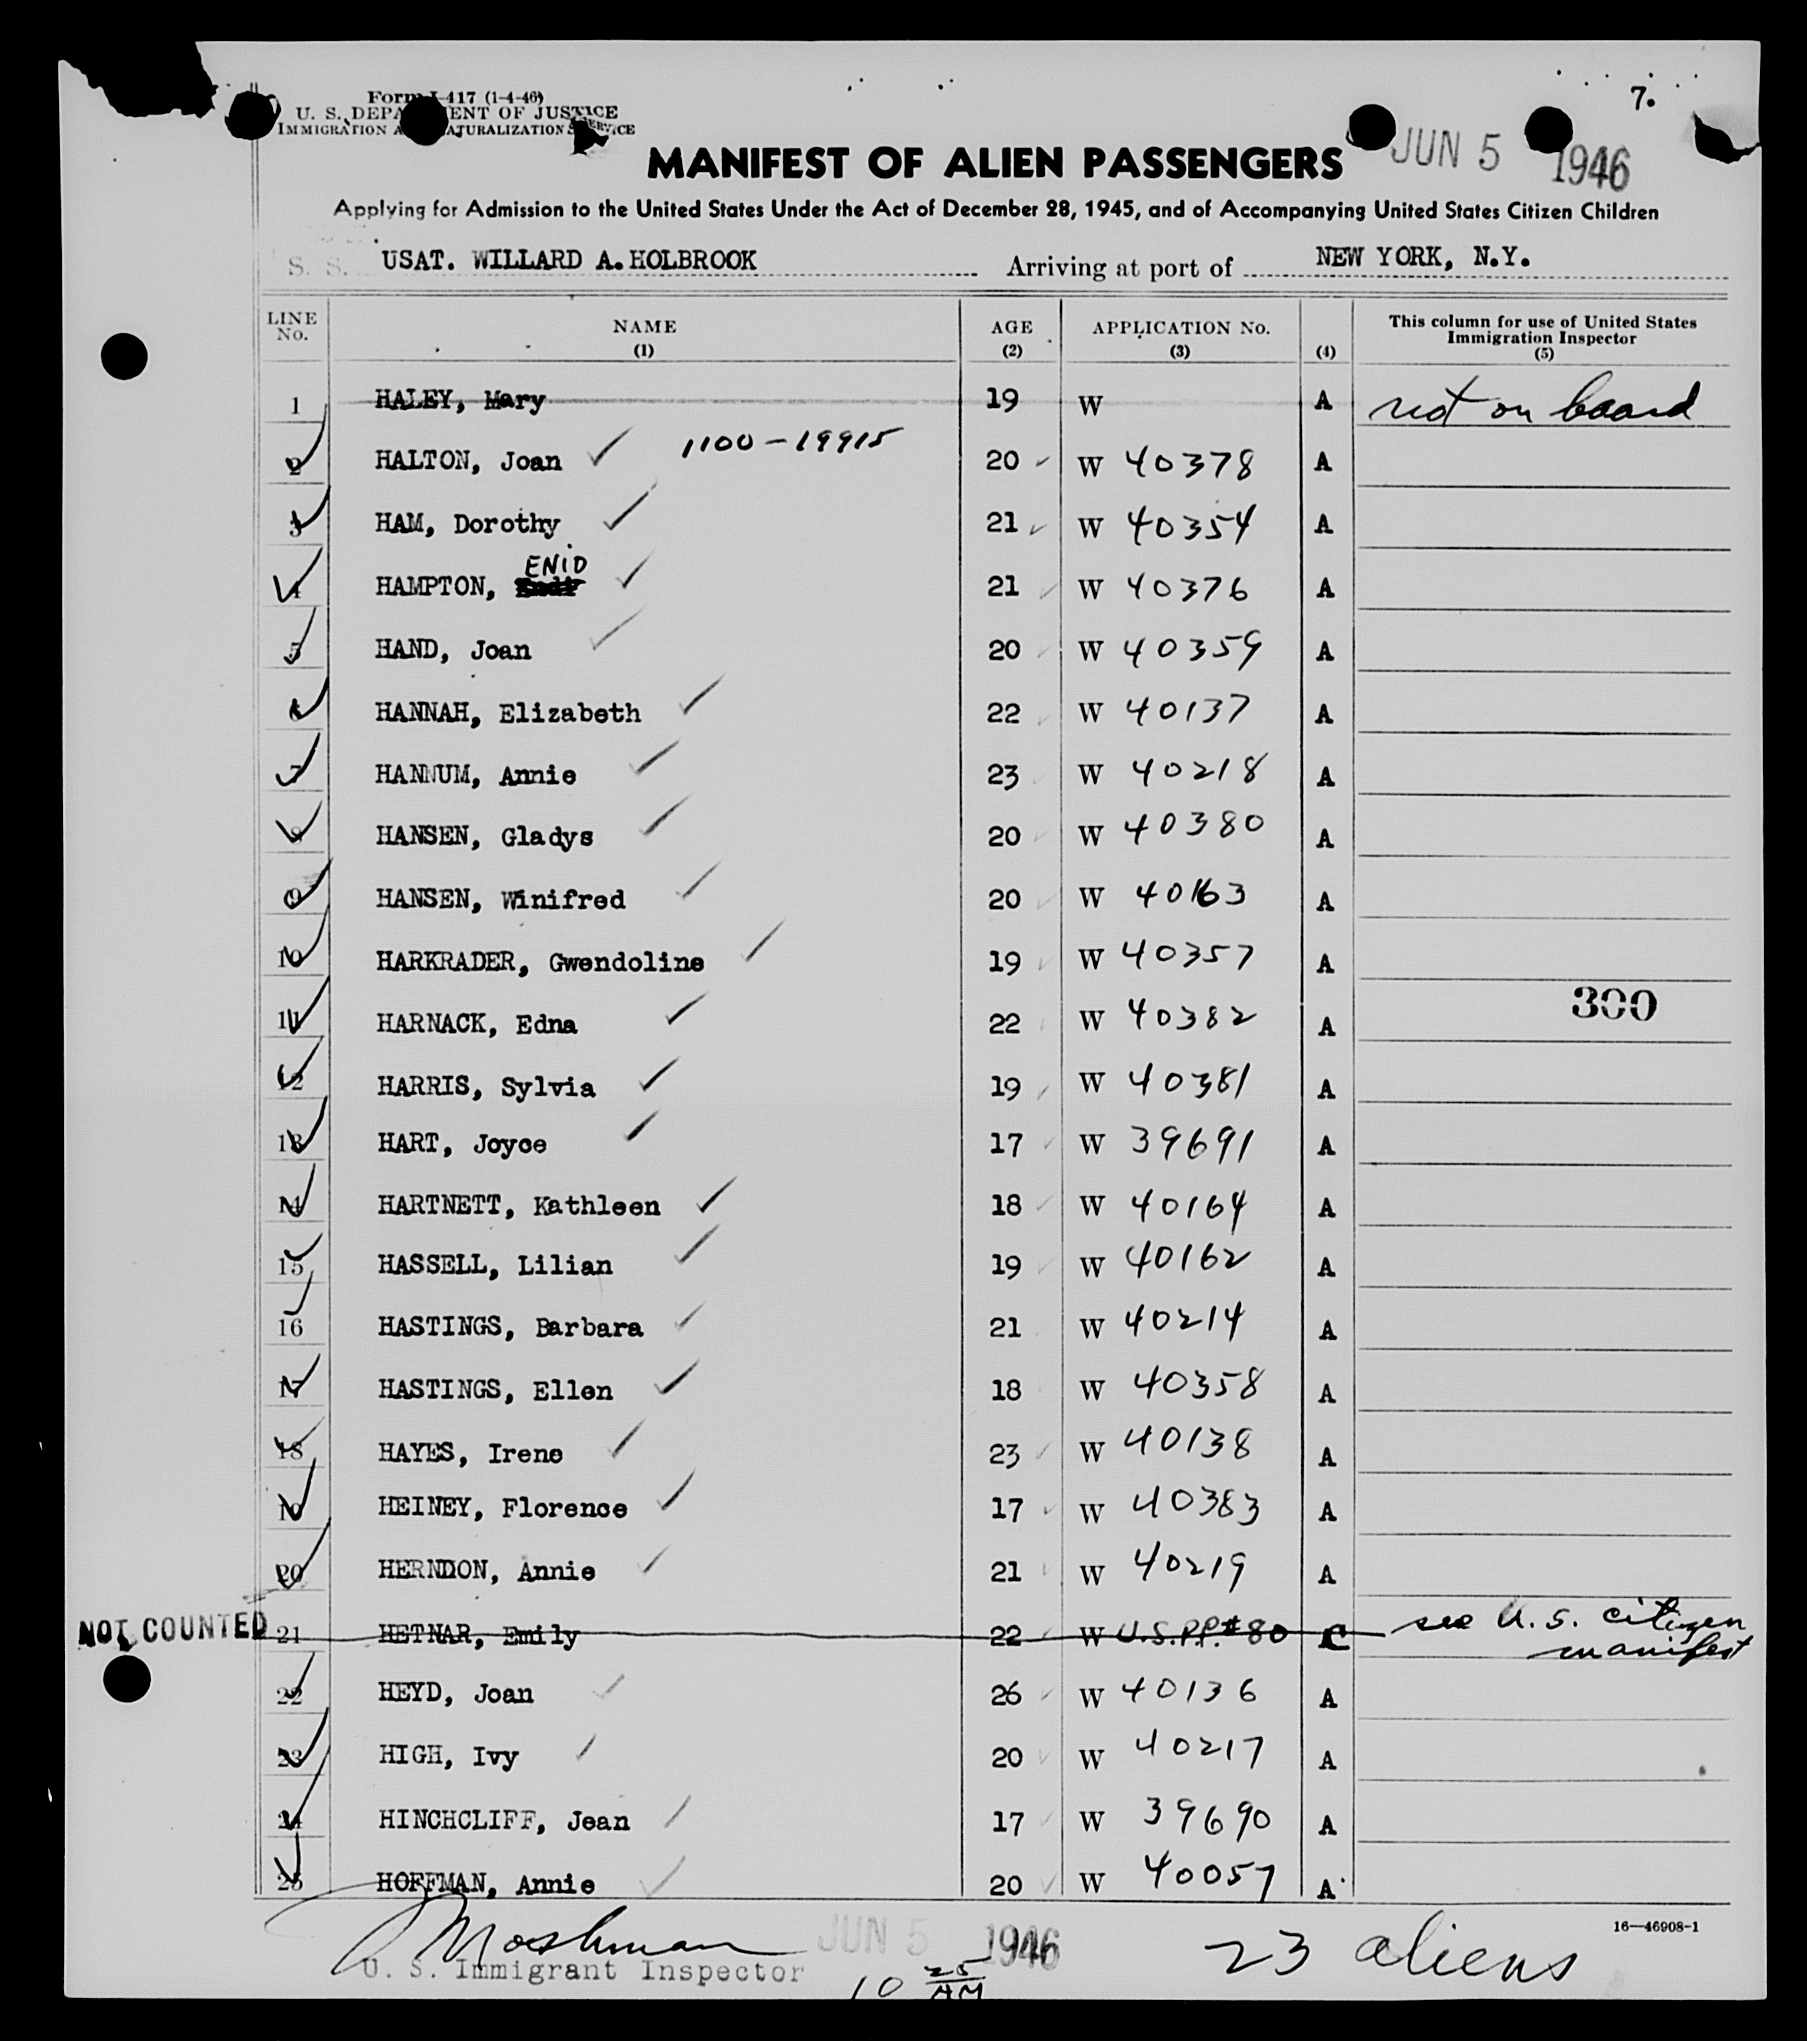 7.
Form I-417 (1-4-46)
U. S. DEPARTMENT OF JUSTICE
IMMIGRATION AND NATURALIZATION SERVICE
JUN 5 1946
MANIFEST OF ALIEN PASSENGERS
Applying for Admission to the United States Under the Act of December 28, 1945, and of Accompanying United States Citizen Children
S. S. USAT. WILLARD A. HOLBROOK Arriving at port of NEW YORK, N.Y.
LINE No. NAME (1) AGE (2) APPLICATION No. (3) (4) This column for use of United States Immigration Inspector (5)
1 HALEY, Mary 19 W A not on board
2 HALTON, Joan 1100-19915 20 W 40378 A
3 HAM, Dorothy 21 W 40354 A
4 HAMPTON, ENID 21 W 40376 A
5 HAND, Joan 20 W 40359 A
6 HANNAH, Elizabeth 22 W 40137 A
7 HANNUM, Annie 23 W 40218 A
8 HANSEN, Gladys 20 W 40380 A
9 HANSEN, Winifred 20 W 40163 A
10 HARKRADER, Gwendoline 19 W 40357 A
300
11 HARNACK, Edna 22 W 40382 A
12 HARRIS, Sylvia 19 W 40381 A
13 HART, Joyce 17 W 39691 A
14 HARTNETT, Kathleen 18 W 40164 A
15 HASSELL, Lilian 19 W 40162 A
16 HASTINGS, Barbara 21 W 40214 A
17 HASTINGS, Ellen 18 W 40358 A
18 HAYES, Irene 23 W 40138 A
19 HEINEY, Florence 17 W 40383 A
20 HERNDON, Annie 21 W 40219 A
NOT COUNTED 21 HETNAR, Emily 22 W U.S.P.P.#80 C see U.S. citizen manifest
22 HEYD, Joan 26 W 40136 A
23 HIGH, Ivy 20 W 40217 A
24 HINCHCLIFF, Jean 17 W 39690 A
25 HOFFMAN, Annie 20 W 40057 A
Moshman JUN 5 1946 23 aliens 16—46908-1
U. S. Immigrant Inspector 10 25 AM